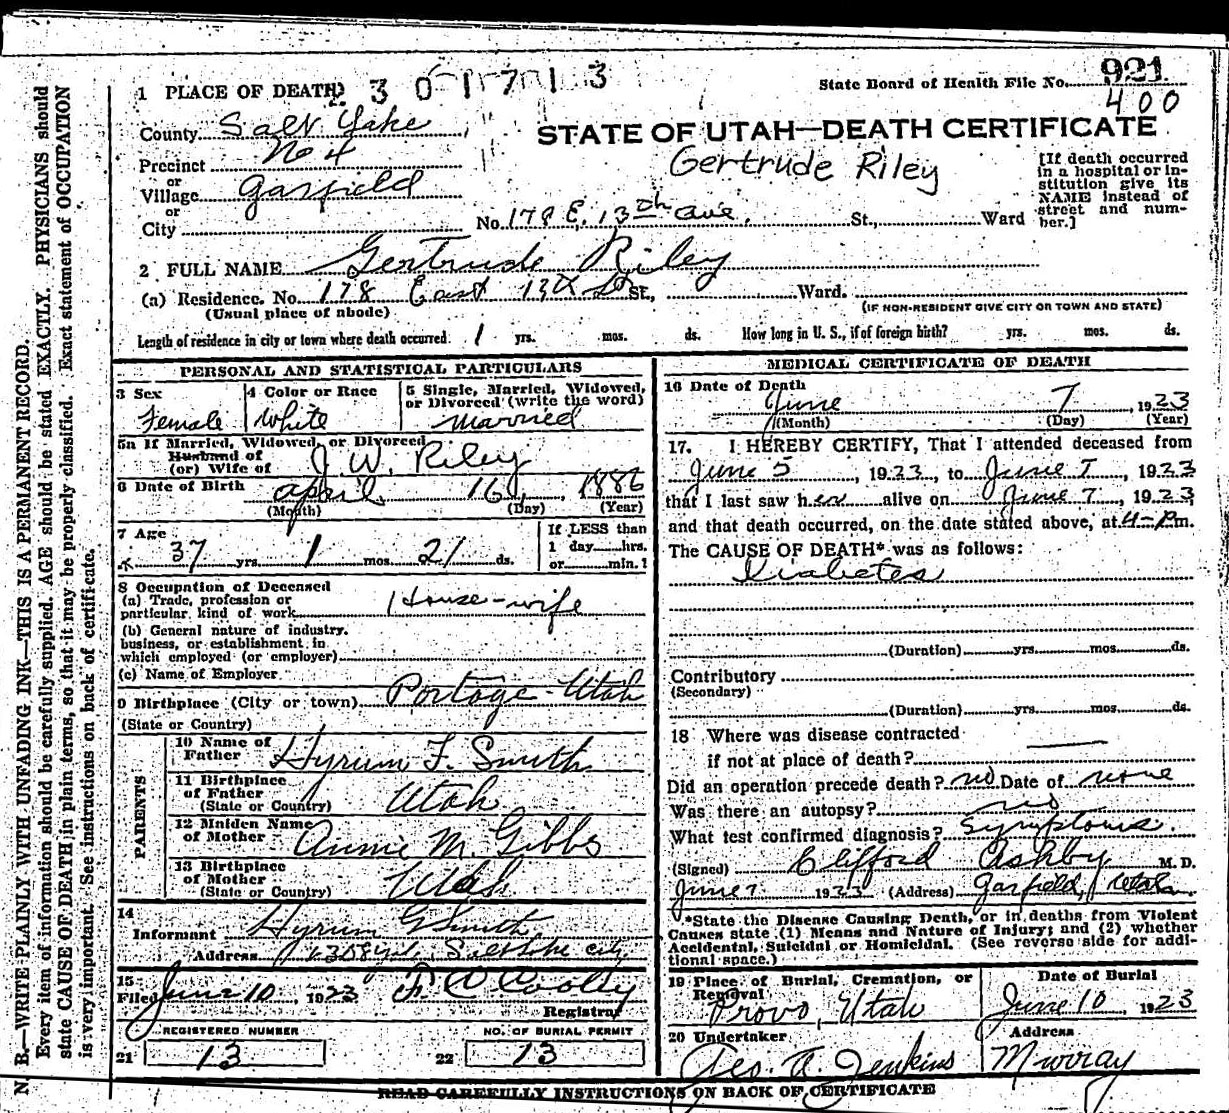 N. B.—WRITE PLAINLY WITH UNFADING INK—THIS IS A PERMANENT RECORD.
Every item of information should be carefully supplied. AGE should be stated EXACTLY. PHYSICIANS should
state CAUSE OF DEATH in plain terms, so that it may be properly classified. Exact statement of OCCUPATION
is very important. See instructions on back of certificate.
1 PLACE OF DEATH
State Board of Health File No. 921
400
County Salt Lake
STATE OF UTAH—DEATH CERTIFICATE
Gertrude Riley
Precinct No 4
or
Village Garfield
or
City
No. 178 E. 13th ave. St., Ward
[If death occurred
in a hospital or in-
stitution give its
NAME instead of
street and num-
ber.]
2 FULL NAME Gertrude Riley
(a) Residence. No. 178 East 13th St., Ward.
(Usual place of abode)
(IF NON-RESIDENT GIVE CITY OR TOWN AND STATE)
Length of residence in city or town where death occurred 1 yrs. mos. ds. How long in U. S., if of foreign birth? yrs. mos. ds.
PERSONAL AND STATISTICAL PARTICULARS
3 Sex
Female
4 Color or Race
White
5 Single, Married, Widowed,
or Divorced (write the word)
Married
5a If Married, Widowed, or Divorced
Husband of
(or) Wife of J. W. Riley
6 Date of Birth April 16, 1886
(Month) (Day) (Year)
7 Age
37 yrs. 1 mos. 21 ds.
If LESS than
1 day hrs.
or min.?
8 Occupation of Deceased
(a) Trade, profession or
particular kind of work House-wife
(b) General nature of industry.
business, or establishment in
which employed (or employer)
(c) Name of Employer
9 Birthplace (City or town) Portage-Utah
(State or Country)
PARENTS
10 Name of
Father Hyrum F. Smith
11 Birthplace
of Father
(State or Country) Utah
12 Maiden Name
of Mother Annie M. Gibbs
13 Birthplace
of Mother
(State or Country) Utah
14
Informant Hyrum G Smith
Address Salt Lake City
15
Filed June 10, 1923
Registrar
REGISTERED NUMBER
21 13
NO. OF BURIAL PERMIT
22 13
MEDICAL CERTIFICATE OF DEATH
16 Date of Death
June 7, 1923
(Month) (Day) (Year)
17. I HEREBY CERTIFY, That I attended deceased from
June 5, 1923, to June 7, 1923
that I last saw her alive on June 7, 1923,
and that death occurred, on the date stated above, at 4-P.m.
The CAUSE OF DEATH* was as follows:
Diabetes
(Duration) yrs. mos. ds.
Contributory
(Secondary)
(Duration) yrs. mos. ds.
18 Where was disease contracted
if not at place of death?
Did an operation precede death? no Date of none
Was there an autopsy? no
What test confirmed diagnosis? Symptoms.
(Signed) Clifford Ashby M. D.
June 7 1923 (Address) Garfield, Utah
*State the Disease Causing Death, or in deaths from Violent
Causes state (1) Means and Nature of Injury; and (2) whether
Accidental, Suicidal or Homicidal. (See reverse side for addi-
tional space.)
19 Place of Burial, Cremation, or
Removal
Provo, Utah
Date of Burial
June 10, 1923
20 Undertaker
Geo. A. Jenkins
Address
Murray
READ CAREFULLY INSTRUCTIONS ON BACK OF CERTIFICATE